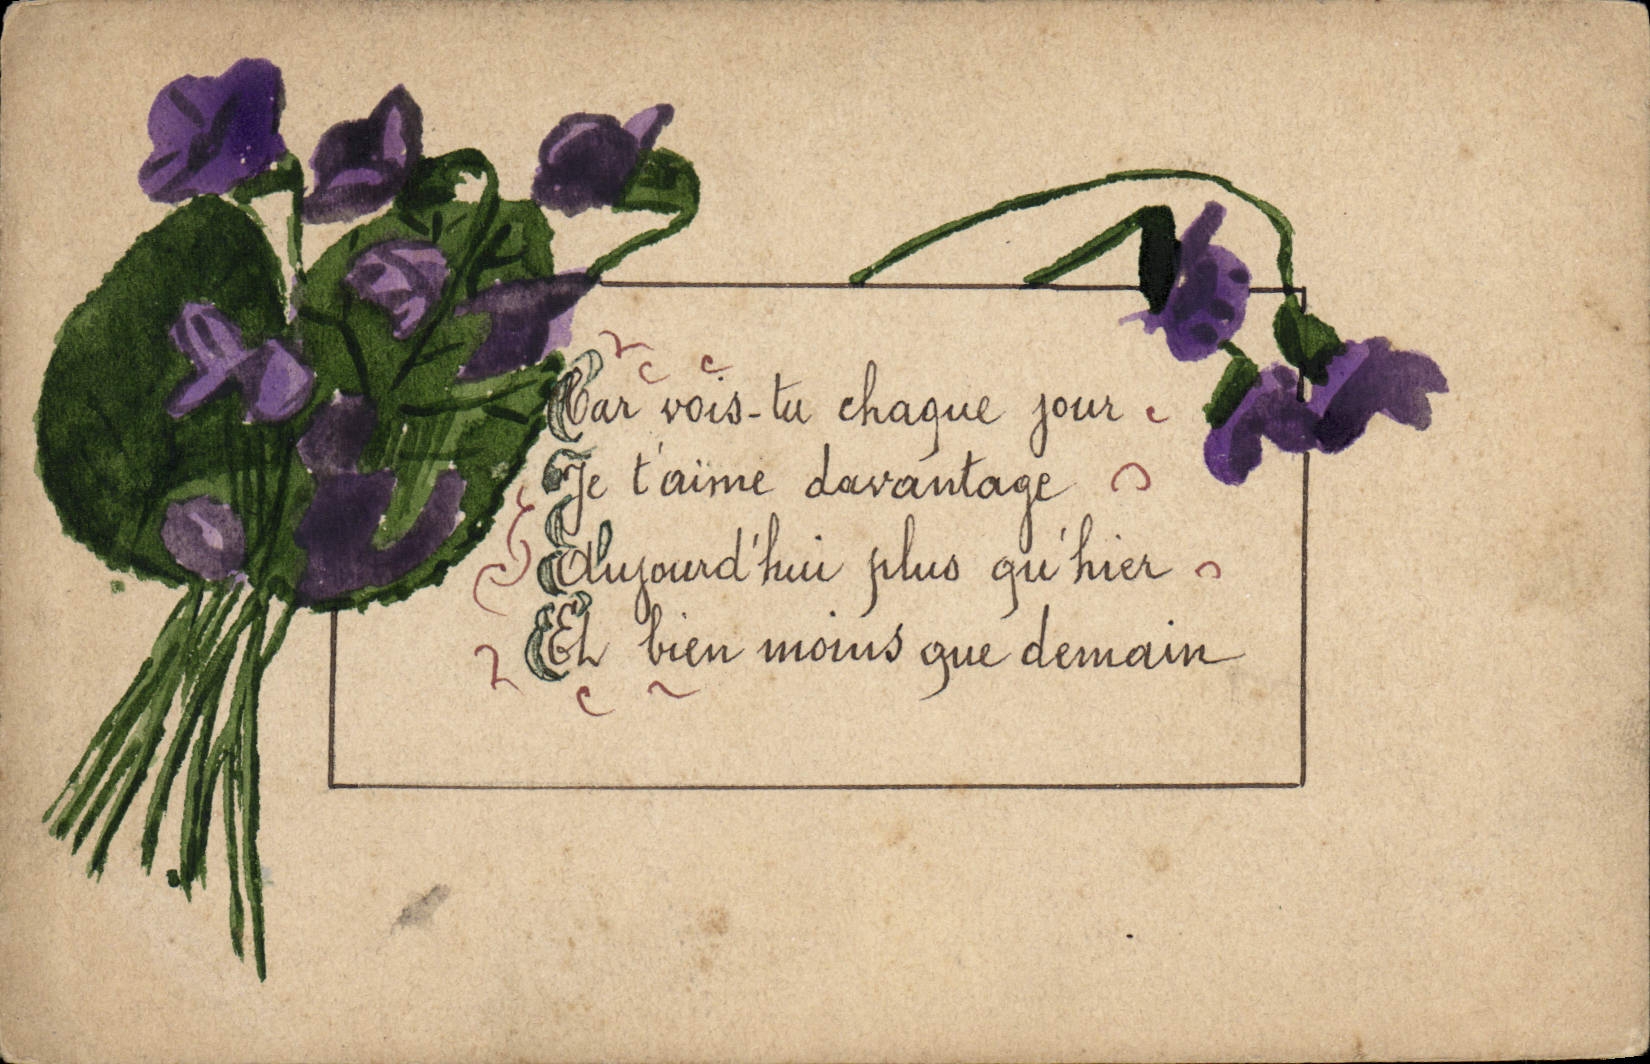 Car vois-tu chaque jour
Je t'aime davantage
Aujourd'hui plus qu'hier
Et bien moins que demain